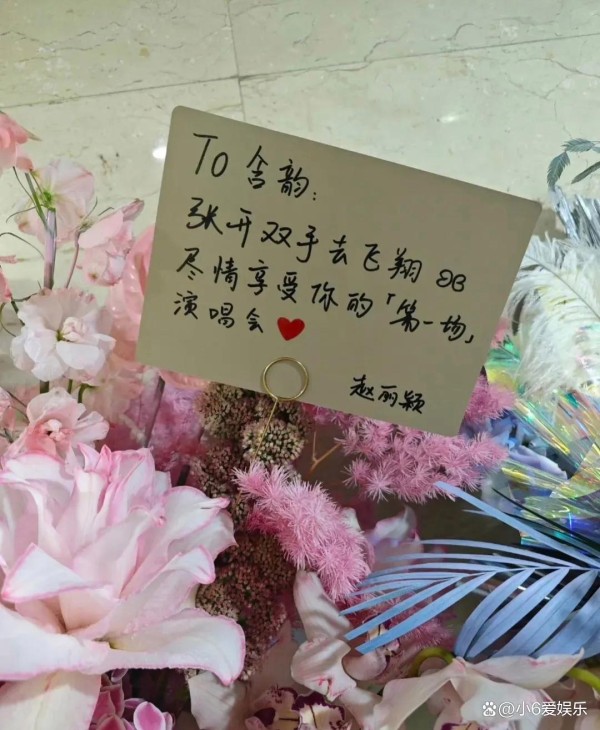 To 含韵:
张开双手去飞翔
尽情享受你的「第一场」
演唱会
赵丽颖
@小6爱娱乐